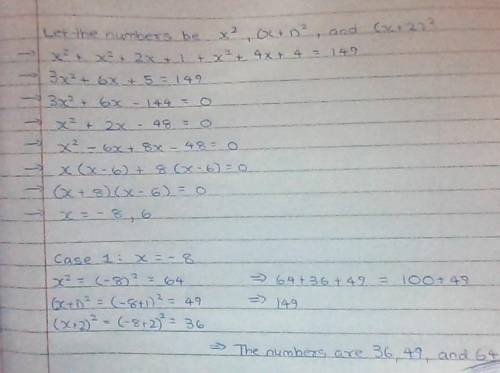 Let the numbers be x², (x+1)², and (x+2)²
→ x² + x² + 2x + 1 + x² + 4x + 4 = 149
→ 3x² + 6x + 5 = 149
→ 3x² + 6x - 144 = 0
→ x² + 2x - 48 = 0
→ x² - 6x + 8x - 48 = 0
→ x(x-6) + 8(x-6) = 0
→ (x+8)(x-6) = 0
→ x = -8, 6
Case 1: x = -8
x² = (-8)² = 64 ⇒ 64+36+49 = 100+49
(x+1)² = (-8+1)² = 49 ⇒ 149
(x+2)² = (-8+2)² = 36
⇒ The numbers are 36, 49, and 64